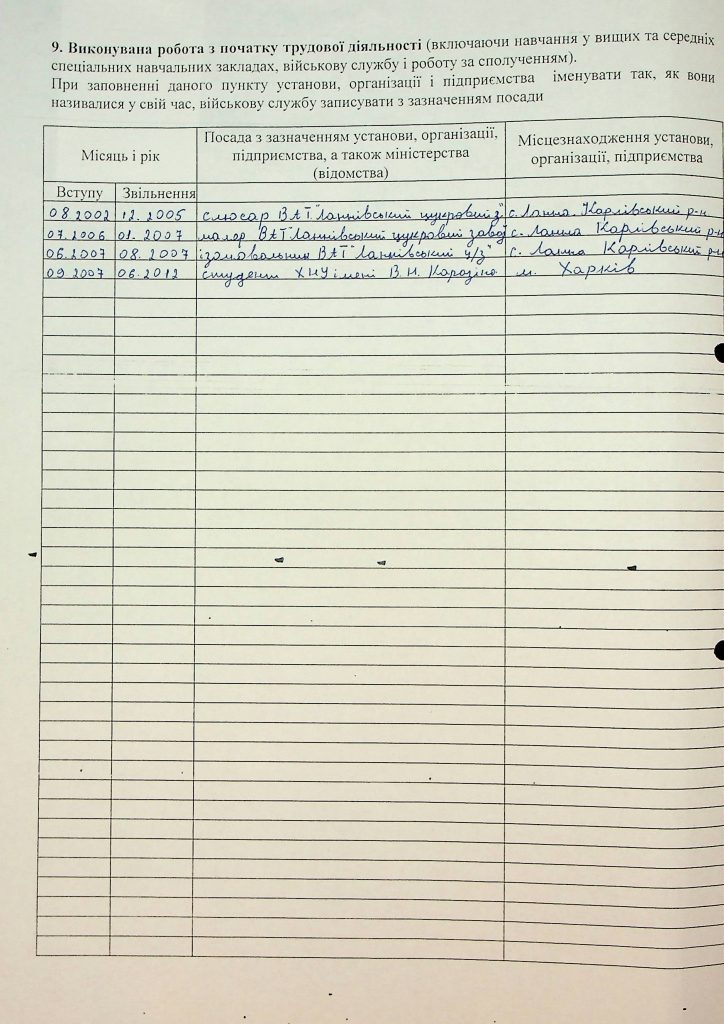 9. Виконувана робота з початку трудової діяльності (включаючи навчання у вищих та середніх
спеціальних навчальних закладах, військову службу і роботу за сполученням).
При заповненні даного пункту установи, організації і підприємства іменувати так, як вони
називалися у свій час, військову службу записувати з зазначенням посади
Місяць і рік
Посада з зазначенням установи, організації,
підприємства, а також міністерства
(відомства)
Місцезнаходження установи,
організації, підприємства
Вступу Звільнення
08.2002 12.2005 слюсар ВАТ "Ланнівський цукровий з" с. Ланна Карлівський р-н
07.2006 01.2007 маляр ВАТ "Ланнівський цукровий завод с. Ланна Карлівський р-н
06.2007 08.2007 ізолювальник ВАТ Ланнівський ц/з" с. Ланна Карлівський р-н
09.2007 06.2012 студент ХНУ імені В.Н. Каразіна м. Харків